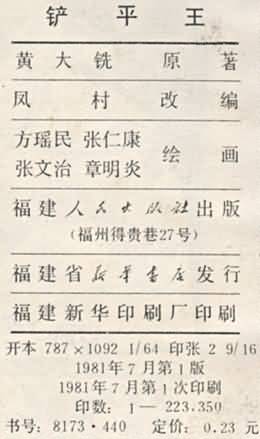 铲平王
黄大铣 原著
凤村 改编
方瑶民 张仁康
张文治 章明炎 绘画
福建人民出版社出版
(福州得贵巷27号)
福建省新华书店发行
福建新华印刷厂印刷
开本 787×1092 1/64 印张 2 9/16
1981年7月第1版
1981年7月第1次印刷
印数: 1— 223,350
书号: 8173·440 定价: 0.23 元